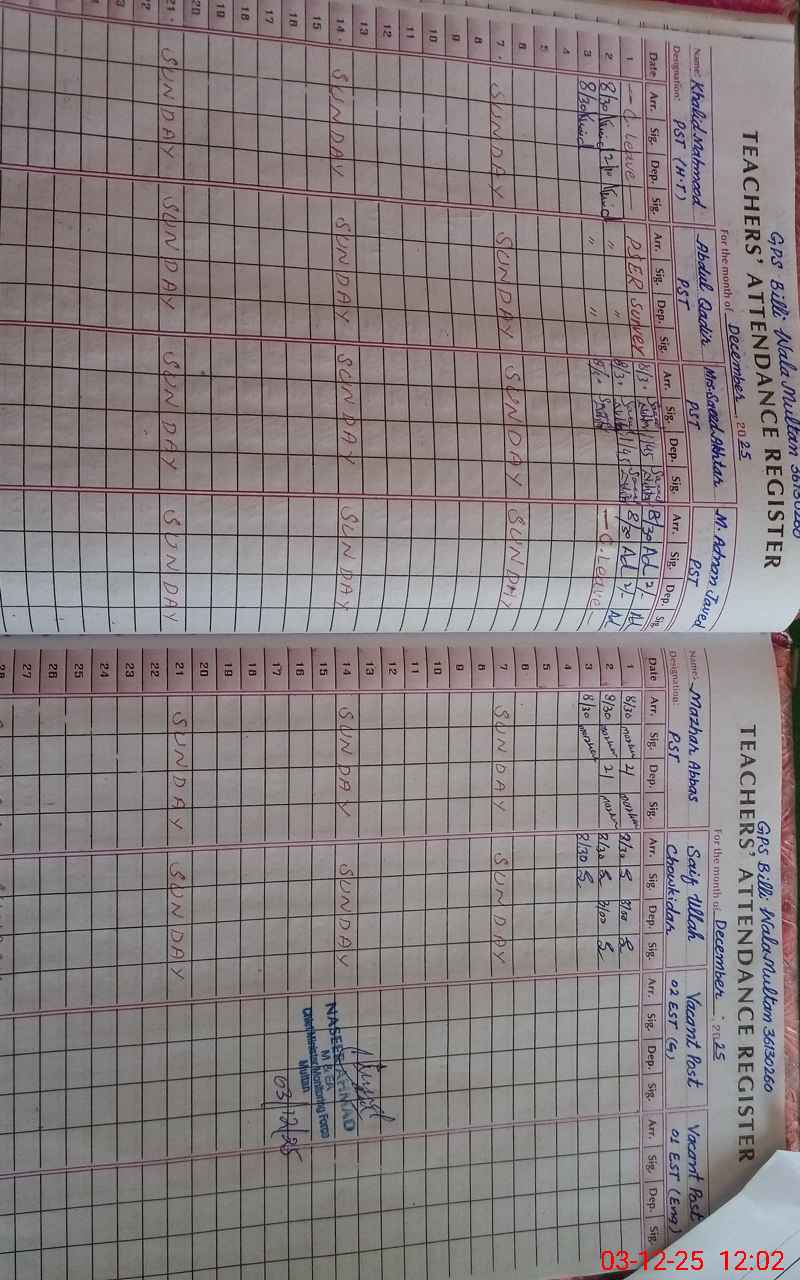 GPS Billi Wala Multan 36130260
TEACHERS' ATTENDANCE REGISTER
For the month of December 2025
Name: Khalid Mahmood Abdul Qadir Mrs. Saeed Akhtar M. Adnan Javed
Designation: PST (H.T) PST PST PST
Date Arr. Sig. Dep. Sig. Arr. Sig. Dep. Sig. Arr. Sig. Dep. Sig. Arr. Sig. Dep. Sig.
1 — C. Leave — PSER Survey 8/30 1/45 8/30 Ad 2/- Ad
2 8/30 " " 8/30 1/45 8/30 Ad 2/- Ad
3 8/30 " " — C. Leave
4
5
6
7 SUNDAY SUNDAY SUNDAY SUNDAY
8
9
10
11
12
13
14 SUNDAY SUNDAY SUNDAY SUNDAY
15
16
17
18
19
20
21 SUNDAY SUNDAY SUNDAY SUNDAY
GPS Billi Wala Multan 36130260
TEACHERS' ATTENDANCE REGISTER
For the month of December 2025
Name: Mazhar Abbas Saif Ullah Vacant Post Vacant Post
Designation: PST Chowkidar 02 EST (G) 01 EST (Eng)
Date Arr. Sig. Dep. Sig. Arr. Sig. Dep. Sig. Arr. Sig. Dep. Sig. Arr. Sig. Dep. Sig.
1 8/30 2/ 8/30 3/00
2 8/30 2/ 8/30 3/00
3 8/30 8/30
4
5
6
7 SUNDAY SUNDAY
8
9
10
11
12
13
14 SUNDAY SUNDAY
15
16
17
18
19
20
21 SUNDAY SUNDAY
22
23
24
25
26
27
28
NASEER AHMAD
M & EA
Chief Minister Monitoring Force
Multan
03/12/25
03-12-25 12:02